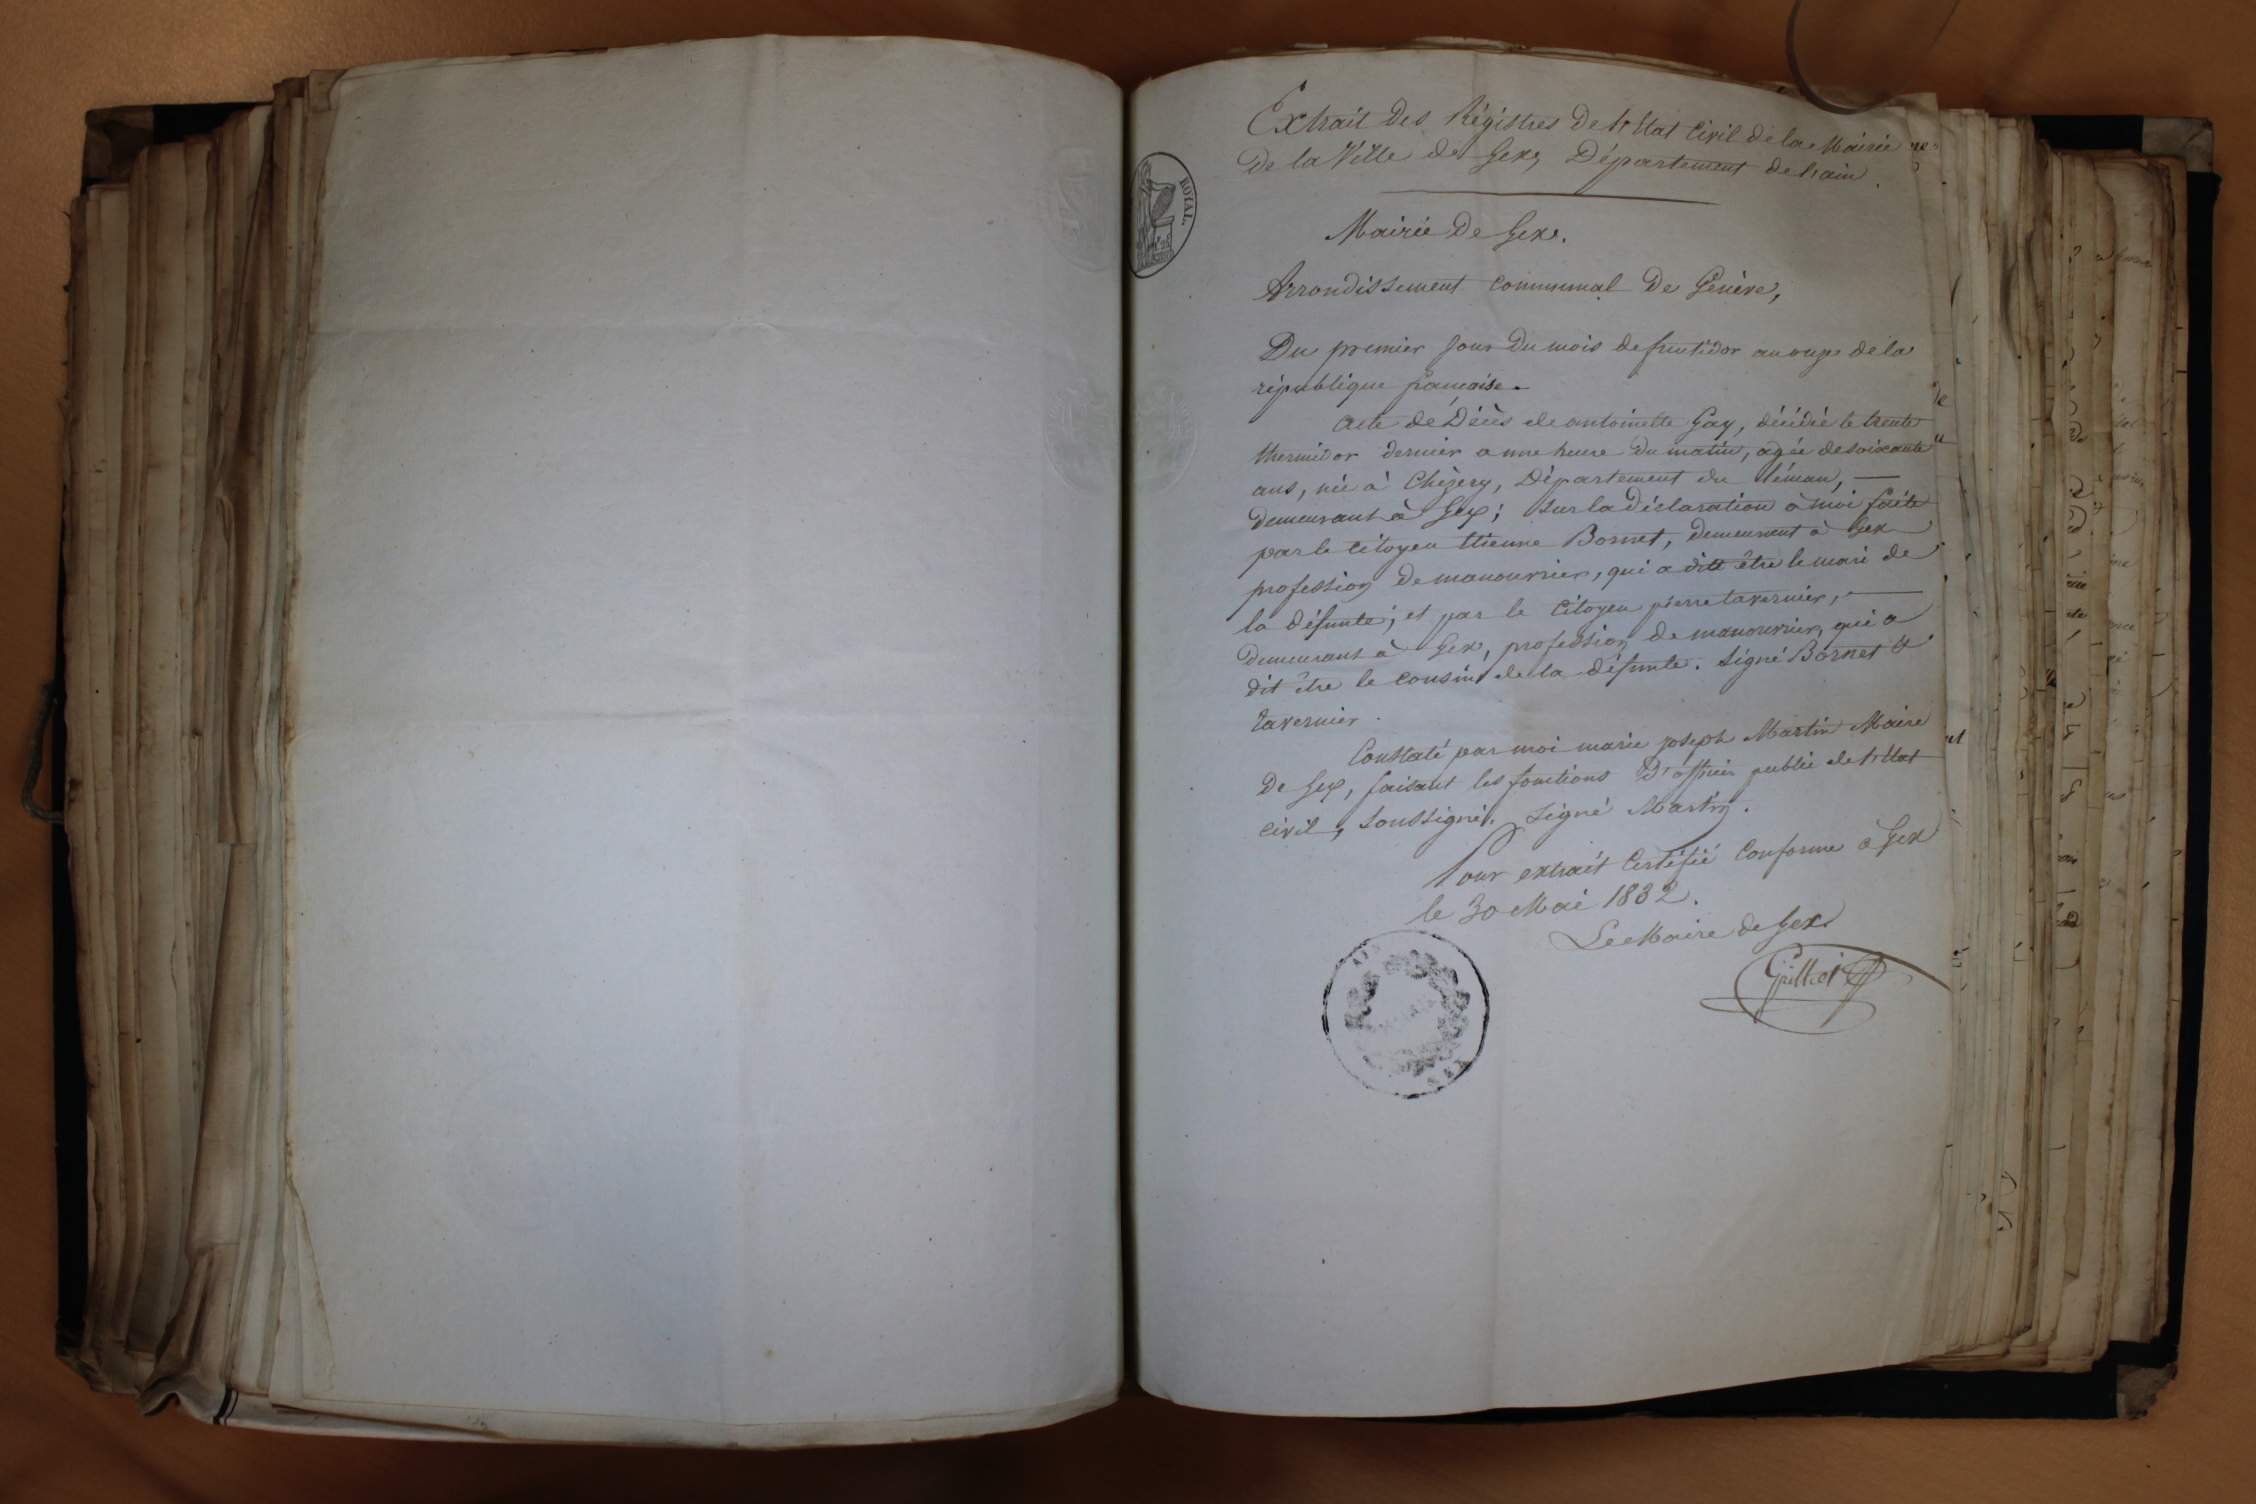 Extrait des Régistres de l'Etat Civil de la Mairie
De la Ville de Gex, Département de l'ain.
ROYAL
Mairie De Gex.
Arrondissement communal De Genève,
Du premier jour du mois de fructidor an onze de la
république française.
Acte de Décès de antoinette Gay, décédée le trente
thermidor dernier a une heure du matin, agée de soixante
ans, née à Chézery, Département du Léman,
demeurant à Gex; sur la déclaration à moi faite
par le citoyen Etienne Bornet, demeurant à Gex
profession de manouvrier, qui a dit être le mari de
la défunte; et par le Citoyen pierre tavernier,
demeurant à Gex, profession de manouvrier, qui a
dit être le cousin de la défunte. signé Bornet &
tavernier.
Constaté par moi marie joseph Martin Maire
De Gex, faisant les fonctions D'officier public de l'Etat
civil, soussigné. Signé Martin.
Pour extrait Certifié Conforme à Gex
le 30 Mai 1832.
Le Maire de Gex